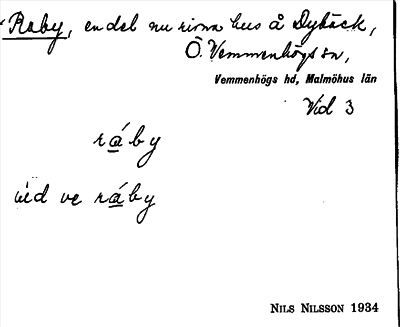 Raby, en del nu rivna hus å Dybäck,
Ö. Vemmenhögs sn,
Vemmenhögs hd, Malmöhus län
Vid 3
ráby
ve ráby
NILS NILSSON 1934